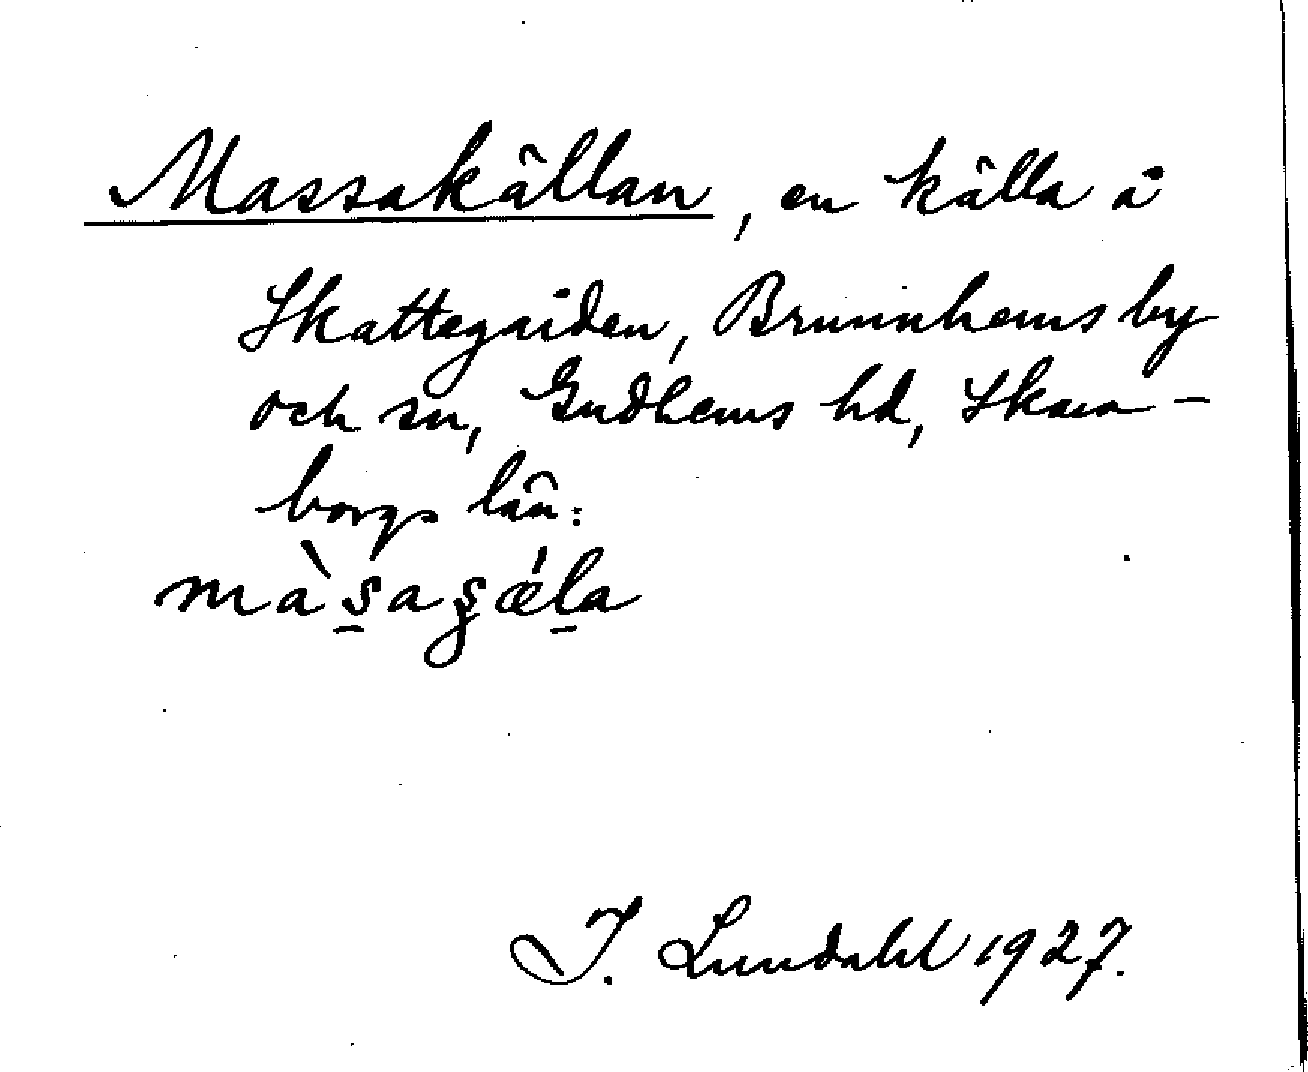 Massakällan, en källa å
Skattegården, Brunnhems by
och sn, Gudhems hd, Skara-
borgs län:
màs̠aʂǽl̠a
I. Lundahl 1927.